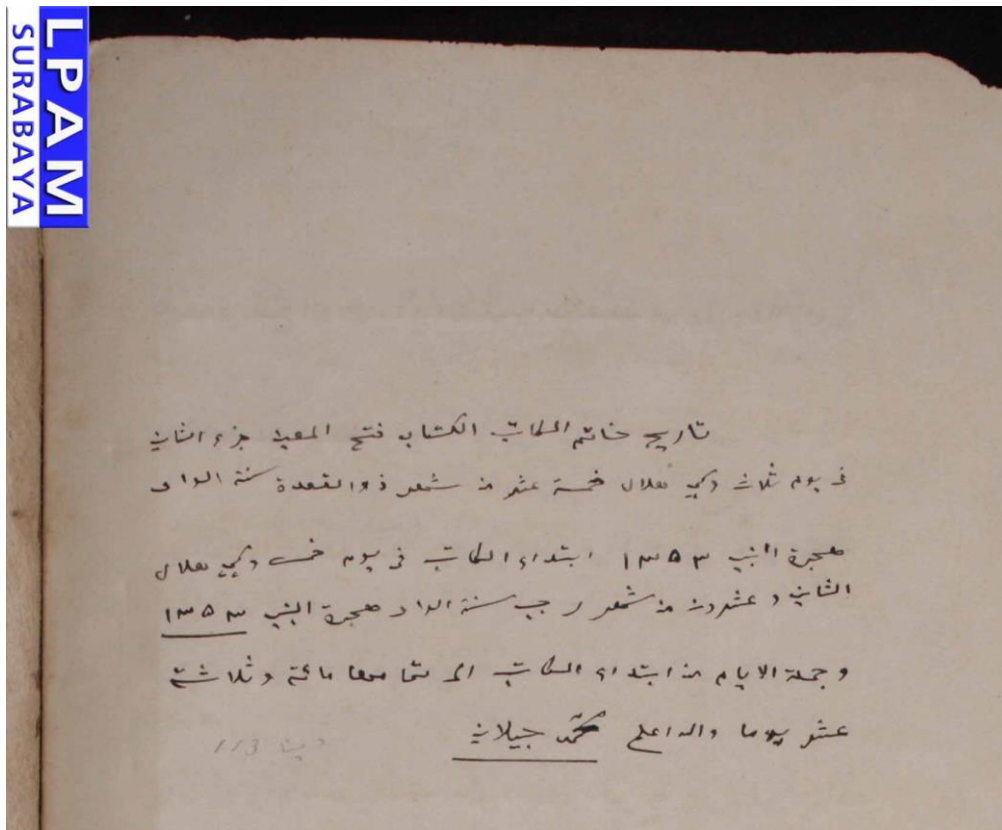 LPAM
SURABAYA
تاريح خاتم الكاتب الكتاب فتح المعين جزء الثاني
في يوم ثلاث وكي هلال خمسة عشر من شهر ذوالقعدة سنة الواو
هجرة النبي ١٣٥٣ ابتداء الكاتب في يوم خمس وكي هلال
الثاني وعشرون من شهر رجب سنة الواو هجرة النبي ١٣٥٣
وجملة الايام من ابتداء الكاتب الى تمامها مائة وثلاثة
عشر يوما والله اعلم محمد جيلاني
113